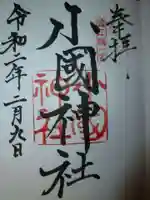 奉拝
小國神社
令和二年二月九日